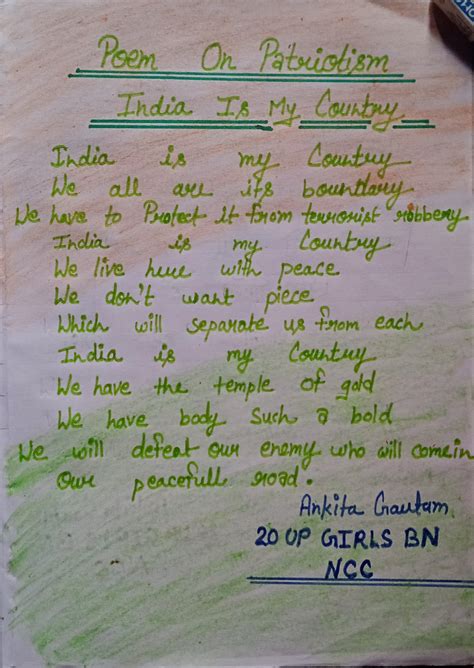 Poem On Patriotism
India Is My Country
India is my Country
We all are its boundary
We have to Protect it from terrorist robbery
India is my Country
We live here with peace
We don't want piece
Which will separate us from each
India is my Country
We have the temple of gold
We have body Such a bold
We will defeat our enemy who will come in
Our peacefull road.
Ankita Gautam
20 UP GIRLS BN
NCC